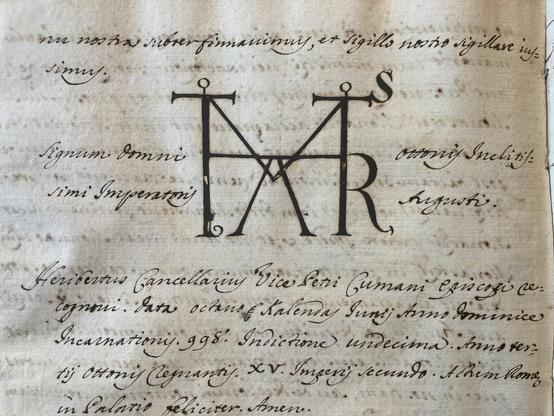 nu nostra subter firmavimus, et sigillo nostro sigillare ius-
simus.
Signum Domni Ottonis Inclitis-
simi Imperatoris Augusti.
Heribertus Cancellarius Vice Petri Cumani Episcopi re-
cognovi. Data octavo Kalendas Junij Anno Dominice
Incarnationis. 998. Indictione undecima. Anno ter-
tij Ottonis Regnantis. XV. Imperij secundo. Actum Rome
in Palatio feliciter. Amen.